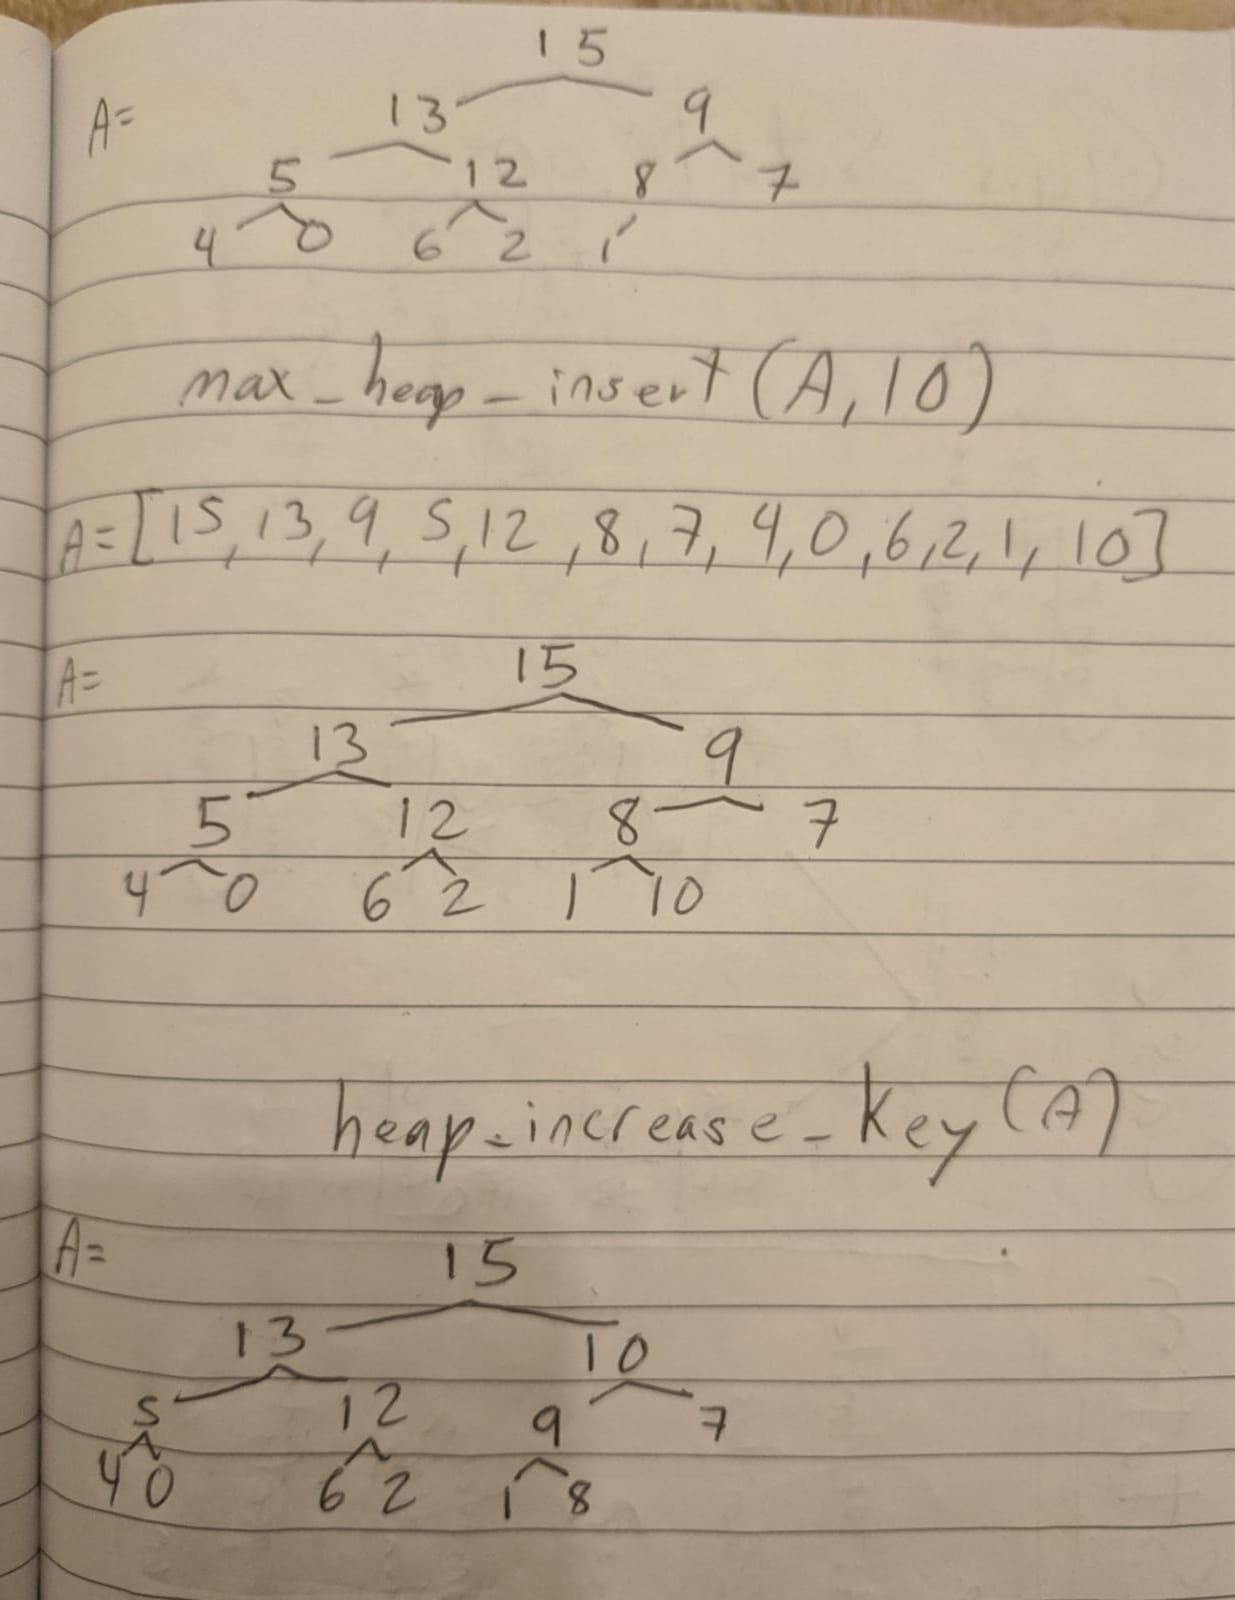 15
A=
13 9
5 12 8 7
4 0 6 2 1
max_heap_insert(A,10)
A=[15,13,9,5,12,8,7,4,0,6,2,1,10]
A= 15
13 9
5 12 8 7
4 0 6 2 1 10
heap_increase_key(A)
A= 15
13 10
5 12 9 7
4 0 6 2 1 8